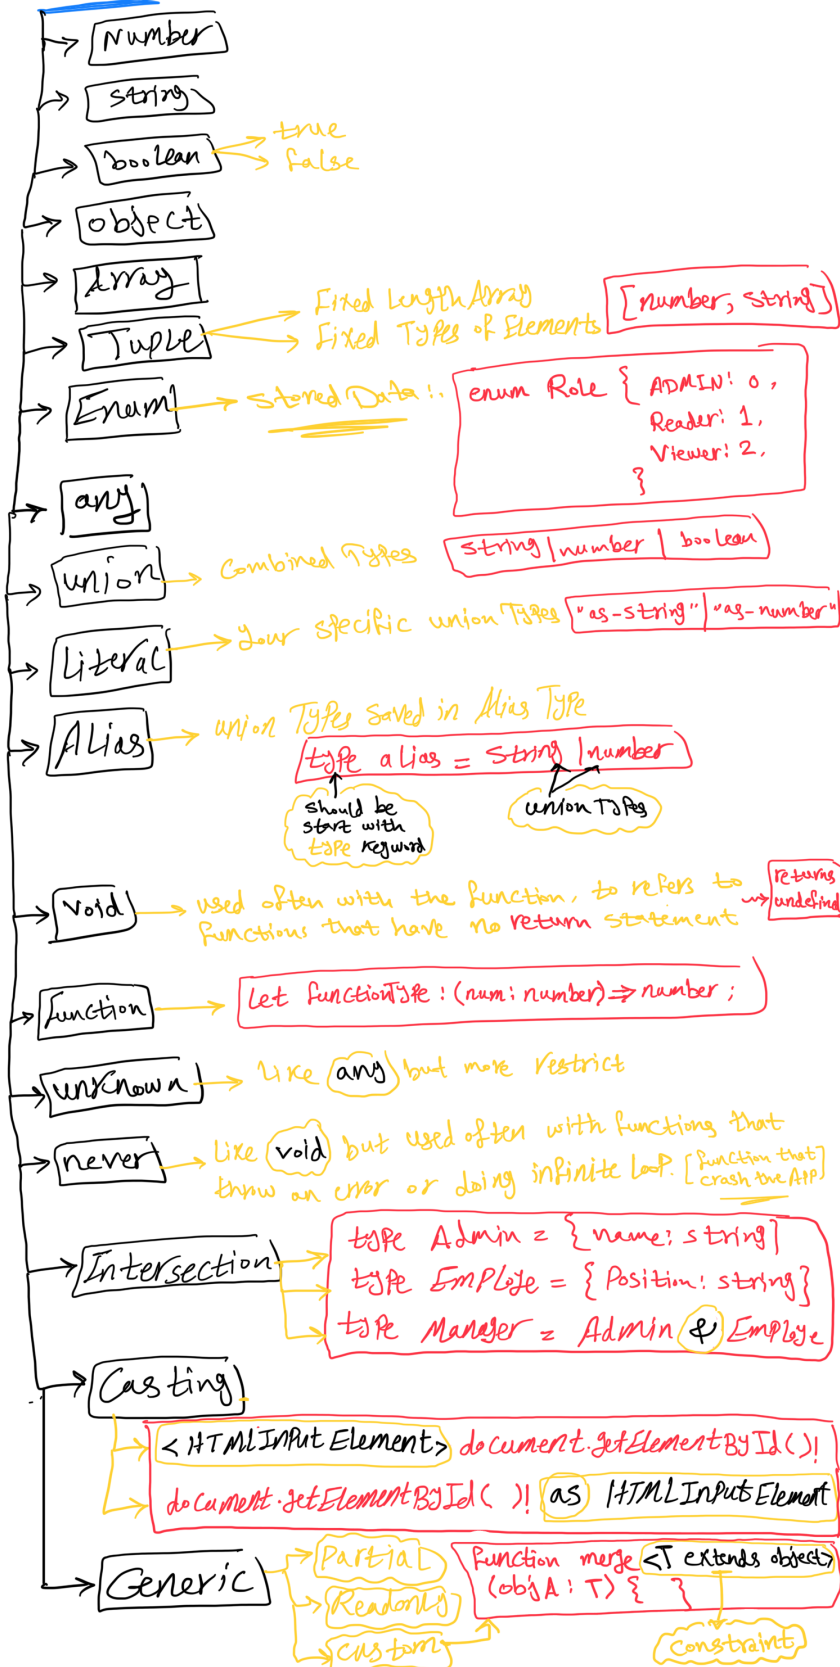 Number
string
boolean
true
false
object
Array
Tuple
Fixed Length Array
Fixed Types of Elements
[number, string]
Enum
Stored Data :.
enum Role { ADMIN: 0,
Reader: 1,
Viewer: 2,
}
any
union
Combined Types
string | number | boolean
Literal
Your specific union Types
"as-string" | "as-number"
Alias
union Types saved in Alias Type
type alias = string | number
should be
start with
type keyword
union Types
void
used often with the function, to refers to
functions that have no return statement
returns
undefind
function
Let functionType : (num: number) => number ;
unknown
Like any but more restrict
never
Like void but used often with functions that
throw an error or doing infinite loop. [function that
crash the APP]
Intersection
type Admin = { name: string }
type Employe = { Position: string }
type Manager = Admin & Employe
Casting
<HTMLInputElement> document.getElementById( )!
document.getElementById( )! as HTMLInputElement
Generic
Partial
Readonly
custom
function merge <T extends object>
(objA : T) { }
constraint